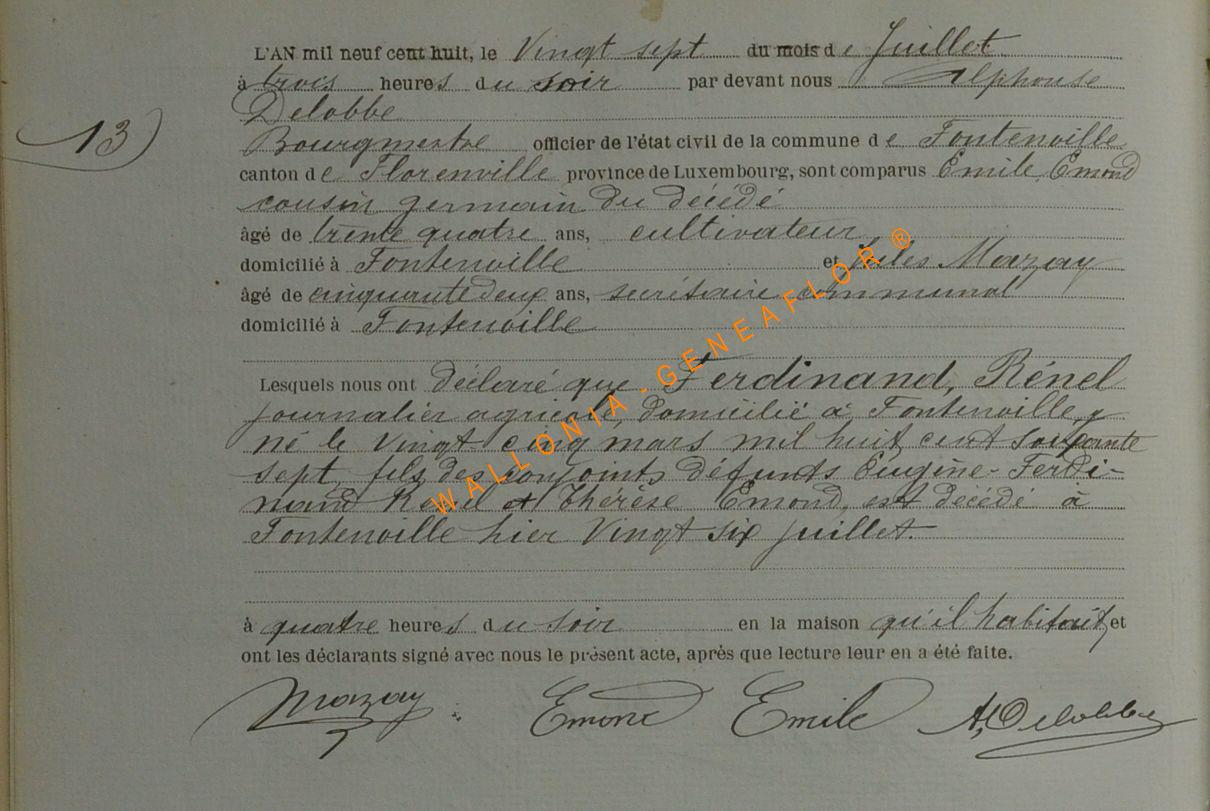 L'AN mil neuf cent huit, le Vingt sept du mois de Juillet
à trois heures du soir par devant nous Alphonse
Delobbe
13)
Bourgmestre officier de l'état civil de la commune de Fontenoille
canton de Florenville province de Luxembourg, sont comparus Emile Emond
cousin germain du décédé
âgé de trente quatre ans, cultivateur
domicilié à Fontenoille et Jules Mazay
âgé de cinquante deux ans, secrétaire communal
domicilié à Fontenoille
Lesquels nous ont déclaré que Ferdinand, Rénel
journalier agricole, domicilié à Fontenoille, y
né le vingt cinq mars mil huit cent soixante
sept, fils des conjoints défunts Eugène-Ferdi-
nand Renel et Thérèse Emond, est décédé à
Fontenoille hier Vingt six juillet.
à quatre heures du soir en la maison qu'il habitait, et
ont les déclarants signé avec nous le présent acte, après que lecture leur en a été faite.
Mazay Emond Emile A. Delobbe
WALLONIA - GENEAFLOR ®